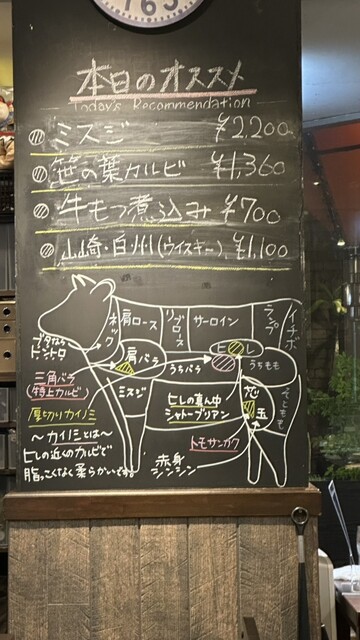 165
本日のオススメ
Today's Recommendation
ミスジ ¥2,200
笹の葉カルビ ¥1,360
牛もつ煮込み ¥700
山崎・白州(ウイスキー) ¥1,100
ネック
肩ロース
リブロース
サーロイン
ランプ
イチボ
ブタなら
トントロ
肩バラ
うちバラ
ヒレ
うちもも
そともも
三角バラ
(特上カルビ)
ミスジ
ヒレの真ん中
シャトーブリアン
芯
玉
厚切りカイノミ
〜カイノミとは〜
ヒレの近くのカルビで
脂っこくなく柔らかいです。
トモサンカク
赤身
シンシン